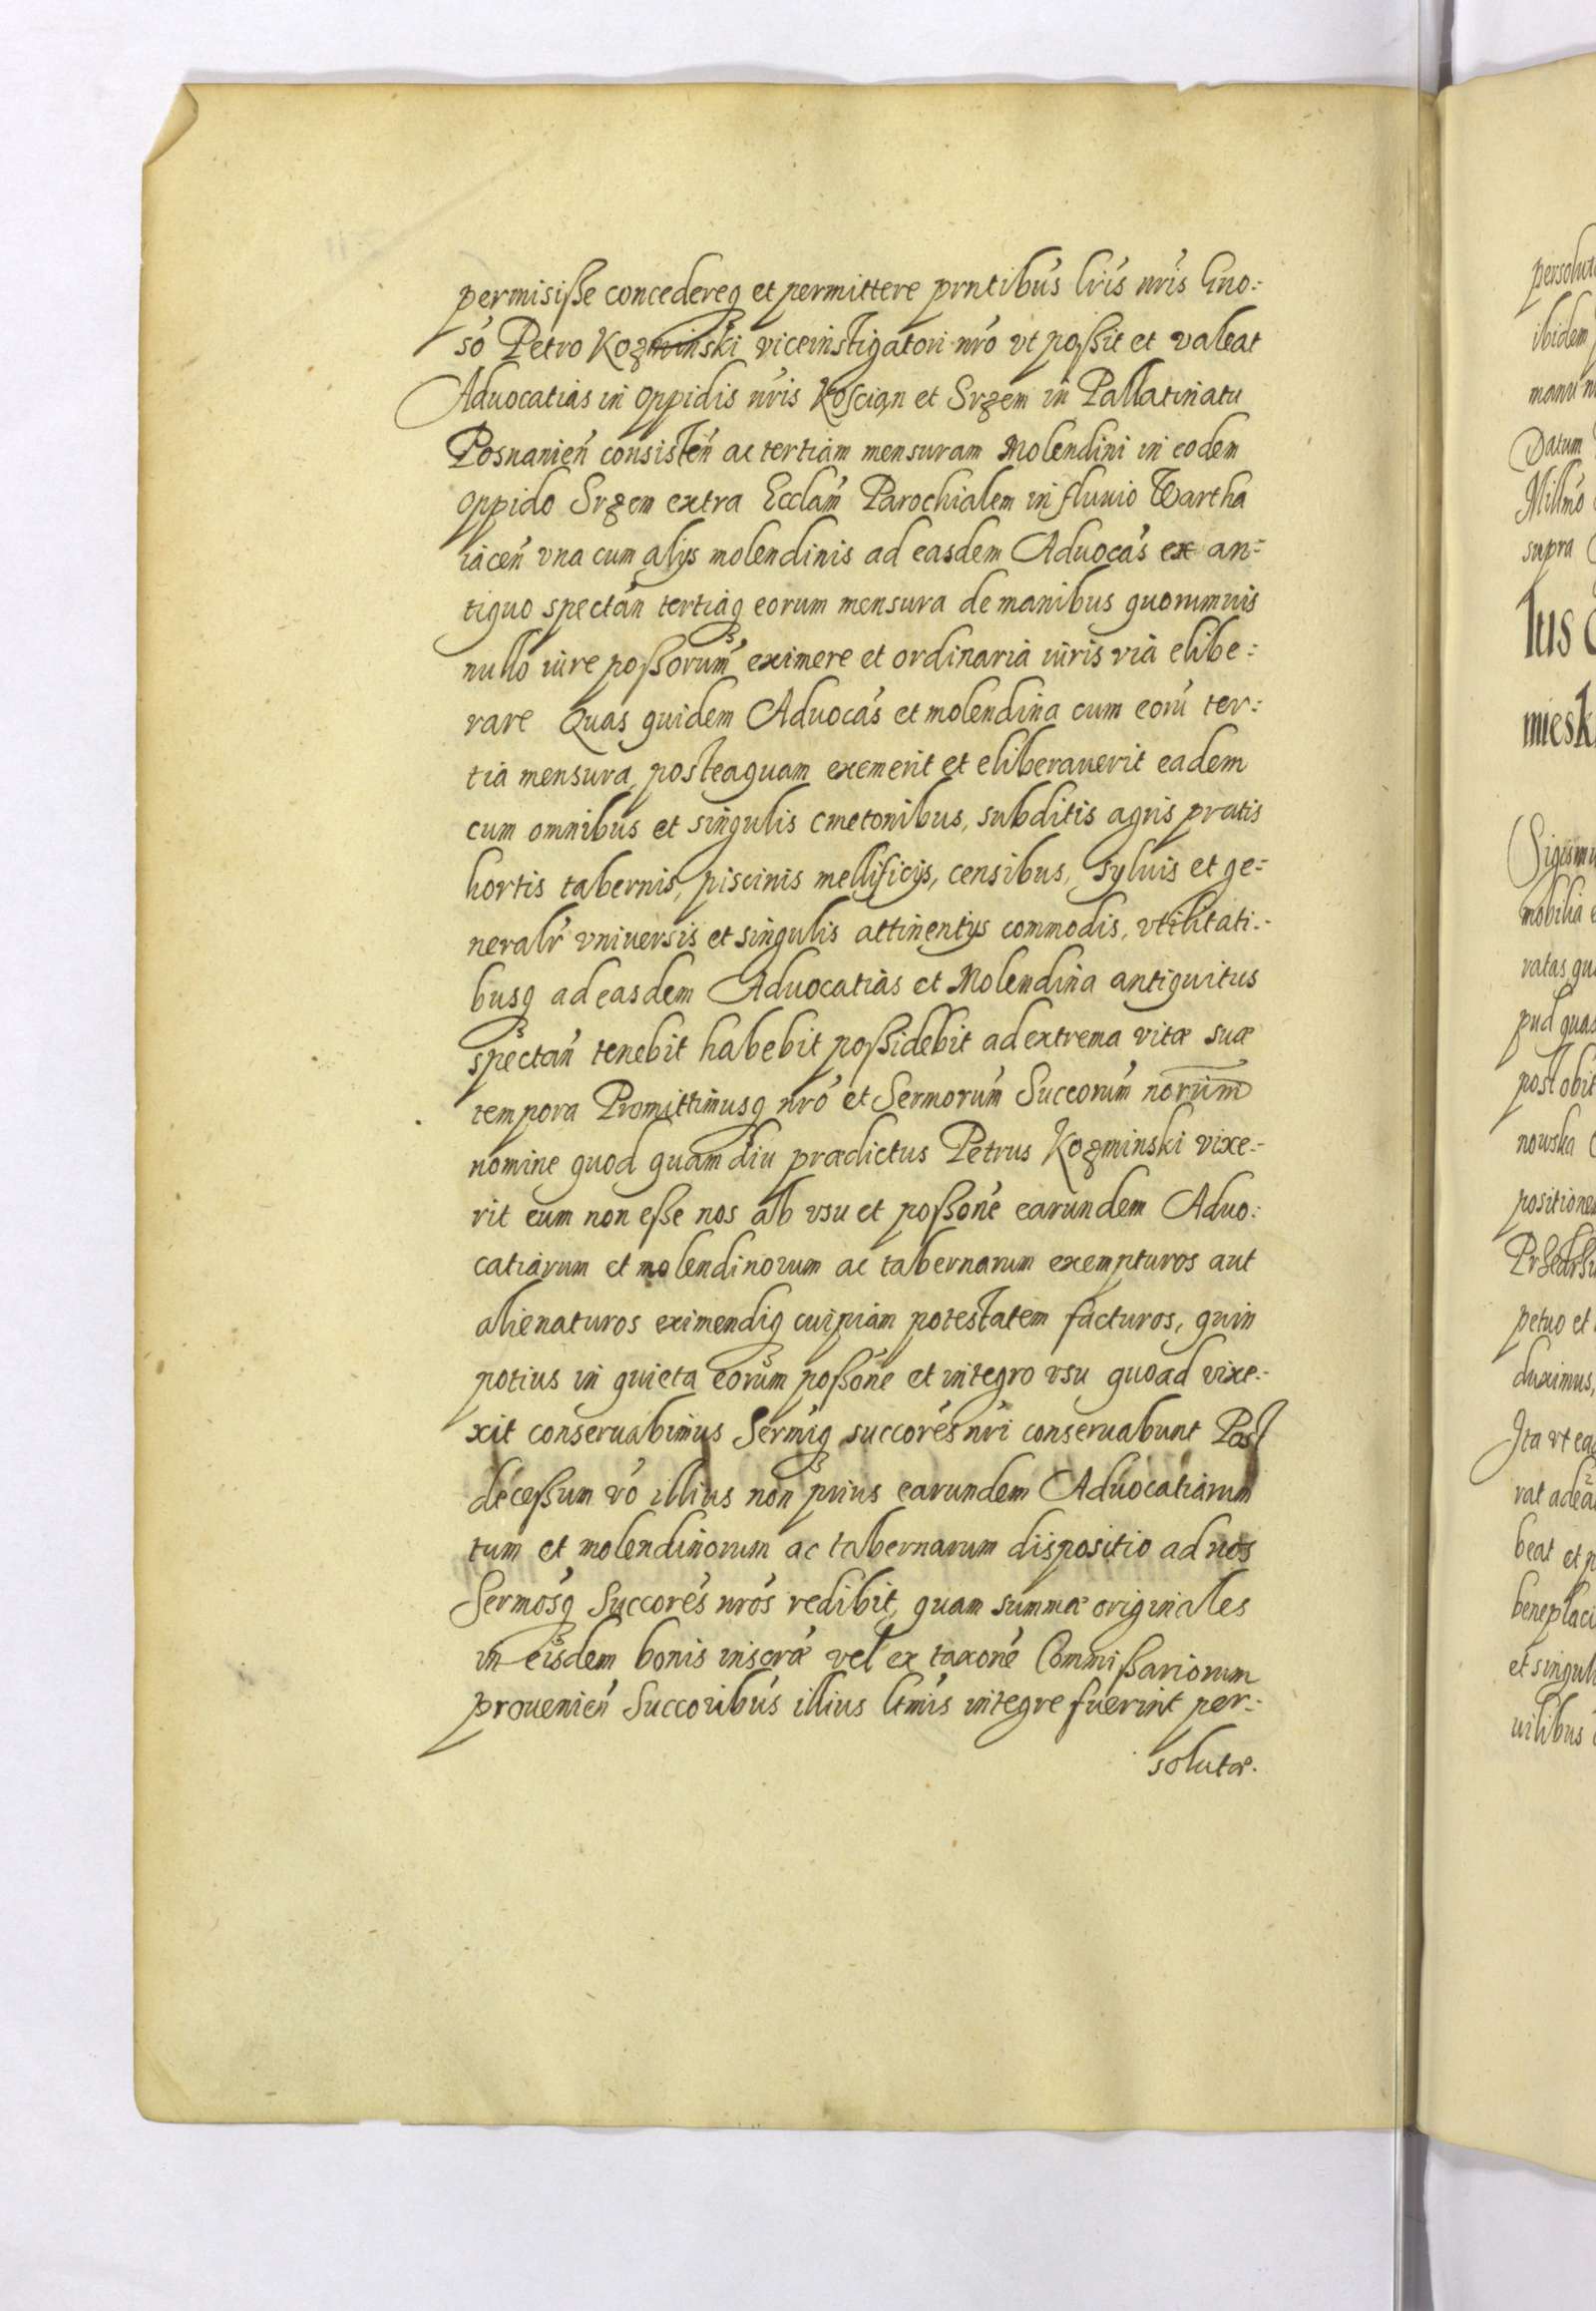 permisiße concedereq et permittere prntibus lris nris Gno:
so Petro Kozminski viceinstigatori nro vt poßit et valeat
Aduocatias in oppidis nris Koscian et Srzem in Pallatinatu
Posnanien consisten ac tertiam mensuram Molendini in eodem
oppido Srzem extra Ecclam Parochialem in fluuio Wartha
iacen vna cum alijs molendinis ad easdem Aduocas ex an:
tiquo spectan tertiaq eorum mensura de manibus quorumuis
nullo iure poßorum eximere et ordinaria iuris via elibe:
rare Quas quidem Aduocas et molendina cum eorū ter:
tia mensura posteaquam exemerit et eliberauerit eadem
cum omnibus et singulis cmetonibus, subditis agris pratis
hortis tabernis, piscinis mellificijs, censibus, syluis et ge:
neralr vniuersis et singulis attinentijs commodis, vtilitati:
busq ad easdem Aduocatias et Molendina antiquitus
spectan tenebit habebit poßidebit ad extrema vitæ suæ
tempora Promittimusq nro et Sermorum Succorum norum
nomine quod quam diu prædictus Petrus Kozminski vixe:
rit eum non eße nos ab vsu et poßone earundem Aduo:
catiarum et molendinorum ac tabernarum exempturos aut
alienaturos eximendiq cuipiam potestatem facturos, quin
potius in quieta eorum poßone et integro vsu quoad vixe:
xit conseruabimus Sermiq succores nri conseruabunt Post
deceßum vo illius non prius earundem Aduocatiarum
tum et molendinorum ac tabernarum dispositio ad nos
Sermosq Succores nros redibit, quam summæ originales
in eisdem bonis inscræ vel ex taxone Commißariorum
prouenien Succoribus illius ltmis integre fuerint per:
solutæ.
persolut
ibidem
manu
Datum
Millmo
supra
Ius
miesk
Sigismu
mobilia
ratas qu
pud quas
post obit
nowska
positione
petuo et
duximus,
Ita vt ea
rat adea
beat et p
beneplaci
et singul
uilibus